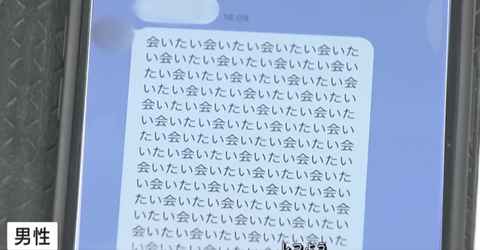 16:09
会いたい会いたい会いたい会いた
い会いたい会いたい会いたい会い
たい会いたい会いたい会いたい会
いたい会いたい会いたい会いたい
会いたい会いたい会いたい会いた
い会いたい会いたい会いたい会い
たい会いたい会いたい会いたい会
いたい会いたい会いたい会いたい
会いたい会いたい会いたい会いた
い会いたい会いたい会いたい会い
たい会いたい会いたい会いたい会
いたい会いたい会いたい会いたい
会いたい会いたい会いたい会いた
男性